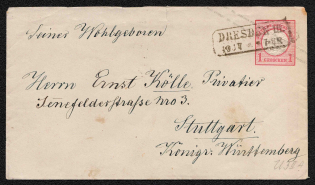 Seiner Wohlgeboren
DRESDEN
Herrn Ernst Kölle. Privatier
Senefelderstraße No 3.
Stuttgart.
Königr. Württemberg
1 1